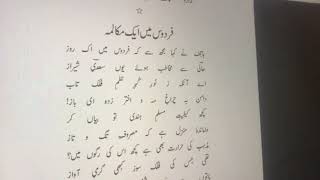 فردوس میں ایک مکالمہ
ہاتف نے کہا مجھ سے کہ فردوس میں اک روز
حالی سے مخاطب ہوئے یوں سعدی شیراز
اے آنکہ ز نور گہر نظم فلک تاب
دامن بہ چراغ مہ و اختر زدہ ای باز!
کچھ کیفیت مسلم ہندی تو بیاں کر
واماندۂ منزل ہے کہ مصروف تگ و تاز
مذہب کی حرارت بھی ہے کچھ اس کی رگوں میں؟
تھی جس کی فلک سوز کبھی گرمی آواز
باتوں